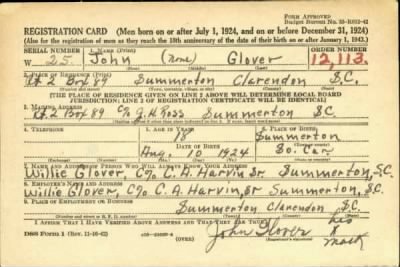 FORM APPROVED
Budget Bureau No. 33-R012-42
REGISTRATION CARD (Men born on or after July 1, 1924, and on or before December 31, 1924)
(Also for the registration of men as they reach the 18th anniversary of the date of their birth on or after January 1, 1943.)
SERIAL NUMBER 1. NAME (Print) ORDER NUMBER
W 25. John (None) Glover 12,113.
(First) (Middle) (Last)
2. PLACE OF RESIDENCE (Print)
Rt 2 Box 89 Summerton Clarendon S.C.
(Number and street) (Town, township, village, or city) (County) (State)
[THE PLACE OF RESIDENCE GIVEN ON LINE 2 ABOVE WILL DETERMINE LOCAL BOARD
JURISDICTION; LINE 2 OF REGISTRATION CERTIFICATE WILL BE IDENTICAL]
3. MAILING ADDRESS
Rt 2 Box 89 C/o Ross Summerton S.C.
4. TELEPHONE 5. AGE IN YEARS 6. PLACE OF BIRTH
18 Summerton
DATE OF BIRTH
Aug. 10 1924 So. Car
7. NAME AND ADDRESS OF PERSON WHO WILL ALWAYS KNOW YOUR ADDRESS
Willie Glover, C/o C. A. Harvin Sr Summerton, S.C.
8. EMPLOYER'S NAME AND ADDRESS
Willie Glover, C/o C. A. Harvin Sr Summerton, S.C.
9. PLACE OF EMPLOYMENT OR BUSINESS
Summerton Clarendon S.C.
(Number and street or R. F. D. number) (Town) (County) (State)
I AFFIRM THAT I HAVE VERIFIED ABOVE ANSWERS AND THAT THEY ARE TRUE.
his
John Glover X
mark
DSS Form 1 (Rev. 11-16-42) (OVER) (Registrant's signature)